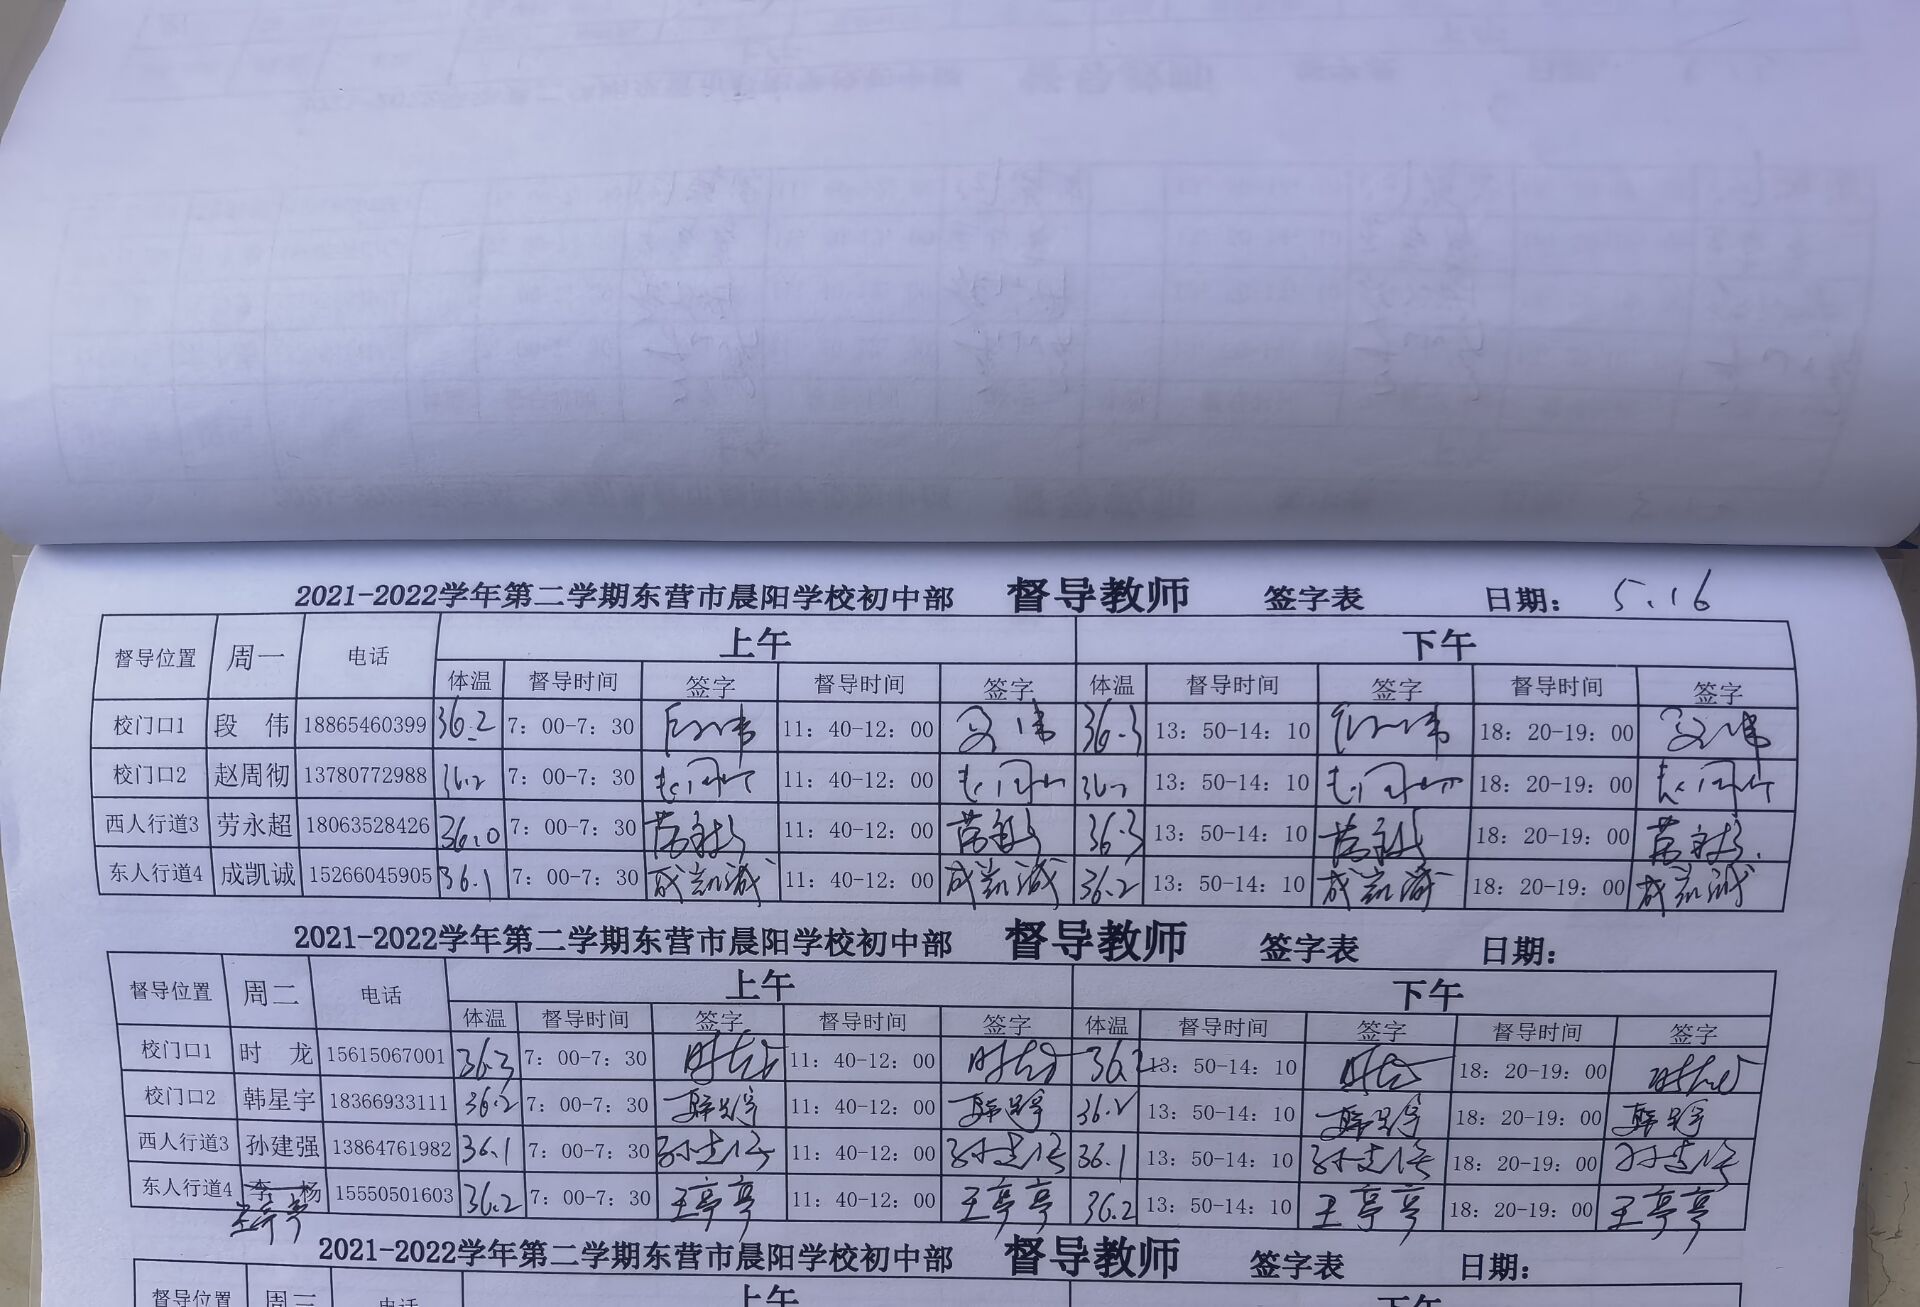 2021-2022学年第二学期东营市晨阳学校初中部 督导教师 签字表 日期: 5.16
督导位置 周一 电话 上午 下午
体温 督导时间 签字 督导时间 签字 体温 督导时间 签字 督导时间 签字
校门口1 段 伟 18865460399 36.2 7: 00-7: 30 段伟 11: 40-12: 00 段伟 36.3 13: 50-14: 10 段伟 18: 20-19: 00 段伟
校门口2 赵周彻 13780772988 36.2 7: 00-7: 30 11: 40-12: 00 36.2 13: 50-14: 10 18: 20-19: 00
西人行道3 劳永超 18063528426 36.0 7: 00-7: 30 劳永超 11: 40-12: 00 劳永超 36.3 13: 50-14: 10 劳永超 18: 20-19: 00 劳永超
东人行道4 成凯诚 15266045905 36.1 7: 00-7: 30 成凯诚 11: 40-12: 00 成凯诚 36.2 13: 50-14: 10 成凯诚 18: 20-19: 00 成凯诚
2021-2022学年第二学期东营市晨阳学校初中部 督导教师 签字表 日期:
督导位置 周二 电话 上午 下午
体温 督导时间 签字 督导时间 签字 体温 督导时间 签字 督导时间 签字
校门口1 时 龙 15615067001 36.3 7: 00-7: 30 时龙 11: 40-12: 00 时龙 36.2 13: 50-14: 10 时龙 18: 20-19: 00 时龙
校门口2 韩星宇 18366933111 36.2 7: 00-7: 30 韩星宇 11: 40-12: 00 韩星宇 36.2 13: 50-14: 10 韩星宇 18: 20-19: 00 韩星宇
西人行道3 孙建强 13864761982 36.1 7: 00-7: 30 孙建强 11: 40-12: 00 孙建强 36.1 13: 50-14: 10 孙建强 18: 20-19: 00 孙建强
东人行道4 李 杨 15550501603 36.2 7: 00-7: 30 王亭亭 11: 40-12: 00 王亭亭 36.2 13: 50-14: 10 王亭亭 18: 20-19: 00 王亭亭
王亭亭
2021-2022学年第二学期东营市晨阳学校初中部 督导教师 签字表 日期:
督导位置 周三 电话 上午 下午